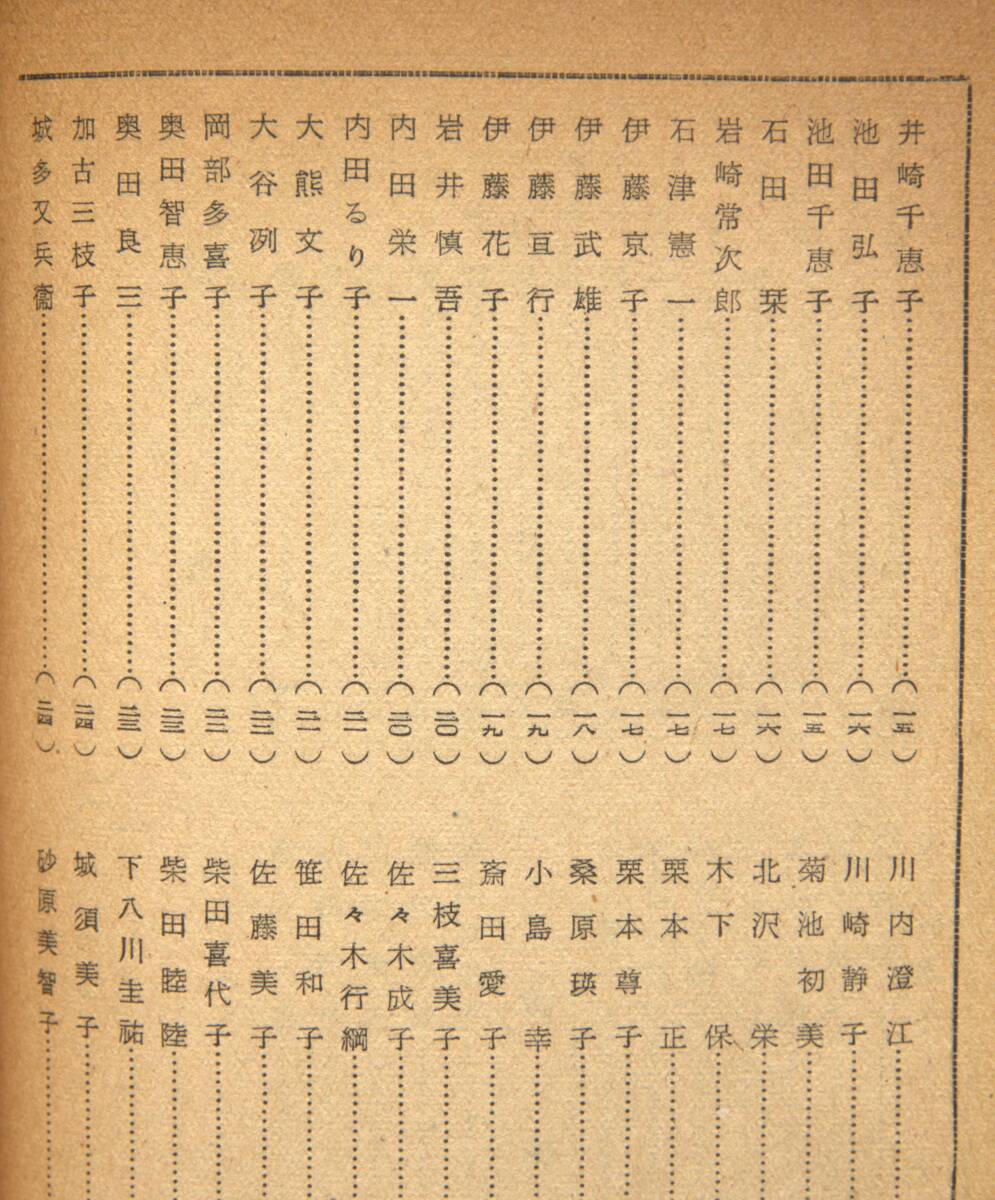 井崎千恵子……（一五）
池田弘子……（一六）
池田千恵子……（一五）
石田栞……（一六）
岩崎常次郎……（一七）
石津憲一……（一七）
伊藤京子……（一七）
伊藤武雄……（一八）
伊藤亘行……（一九）
伊藤花子……（一九）
岩井慎吾……（二〇）
内田栄一……（二〇）
内田るり子……（二一）
大熊文子……（二一）
大谷冽子……（二二）
岡部多喜子……（二二）
奥田智恵子……（二三）
奥田良三……（二三）
加古三枝子……（二四）
城多又兵衞……（二四）
川内澄江……
川崎静子……
菊池初美……
北沢栄……
木下保……
栗本正……
栗本尊子……
桑原瑛子……
小島幸……
斎田愛子……
三枝喜美子……
佐々木成子……
佐々木行綱……
笹田和子……
佐藤美子……
柴田喜代子……
柴田睦陸……
下八川圭祐……
城須美子……
砂原美智子……